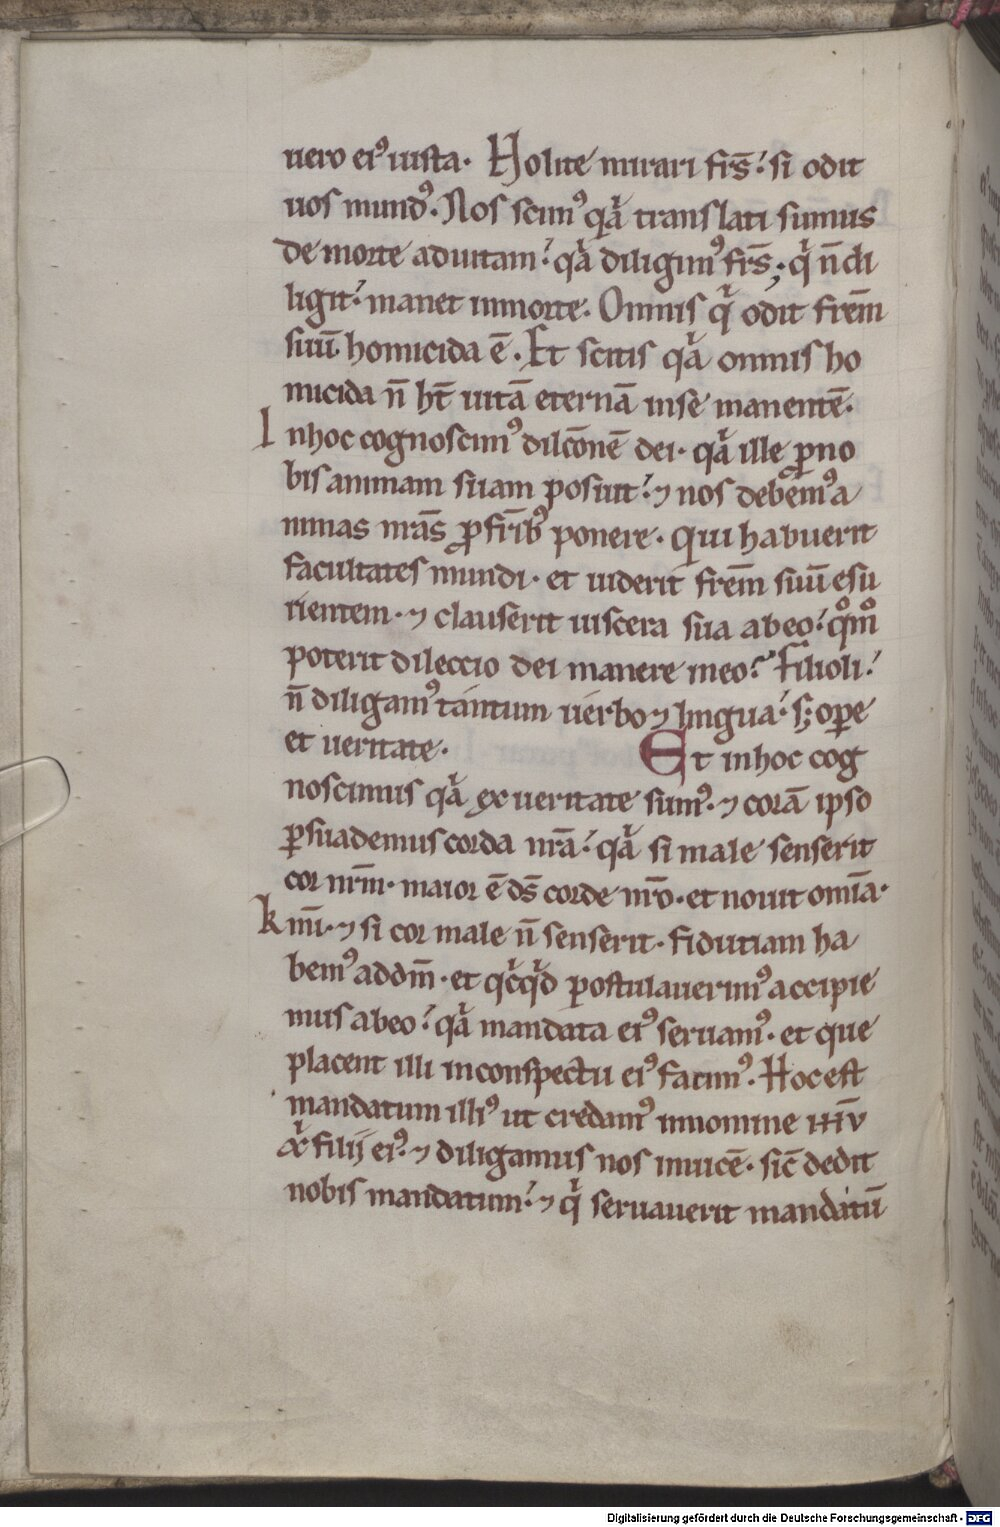 uero ei᷒ iusta. Nolite mirari fr̄s. si odit
uos mund᷒. Nos scim᷒ qͥa translati sumus
de morte ad uitam. qͥa diligim᷒ fr̄s. qͥ n̄ di
ligit. manet in morte. Omnis qͥ odit frēm
suū homicida ē. Et scitis qͥa omnis ho
micida n̄ ht̄ uitā eternā in se manentē.
In hoc cognoscim᷒ dilc̄onē dei. qͥa ille ꝓ no
bis animam suam posuit. ⁊ nos debem᷒ a
nimas nrā̄s ꝓ fr̄ib᷒ ponere. Qui habuerit
facultates mundi. et uiderit frēm suū esu
rientem. ⁊ clauserit uiscera sua ab eo. qͦm̊
poterit dileccio dei manere in eo. Filioli.
n̄ diligam᷒ tantum uerbo ⁊ lingua. sꝫ oꝑe
et ueritate. Et in hoc cog
noscimus qͥa ex ueritate sum᷒. ⁊ corā ipso
ꝑsuademus corda nr̄a. qͥa si male senserit
cor nr̄m. maior ē ds̄ corde nr̄o. et nouit omīa.
Kmī. ⁊ si cor male n̄ senserit. fidutiam ha
bem᷒ ad dm̄. et qͥcqͥd postulauerim᷒ accipie
mus ab eo. qͥa mandata ei᷒ seruam᷒. et que
placent illi in conspectu ei᷒ facim᷒. Hoc est
mandatum illi᷒ ut credam᷒ in nomine ihū
xͥ filij ei᷒. ⁊ diligamus nos inuicē. sic̄ dedit
nobis mandatum. ⁊ qͥ seruauerit mandatū
Digitalisierung gefördert durch die Deutsche Forschungsgemeinschaft - DFG